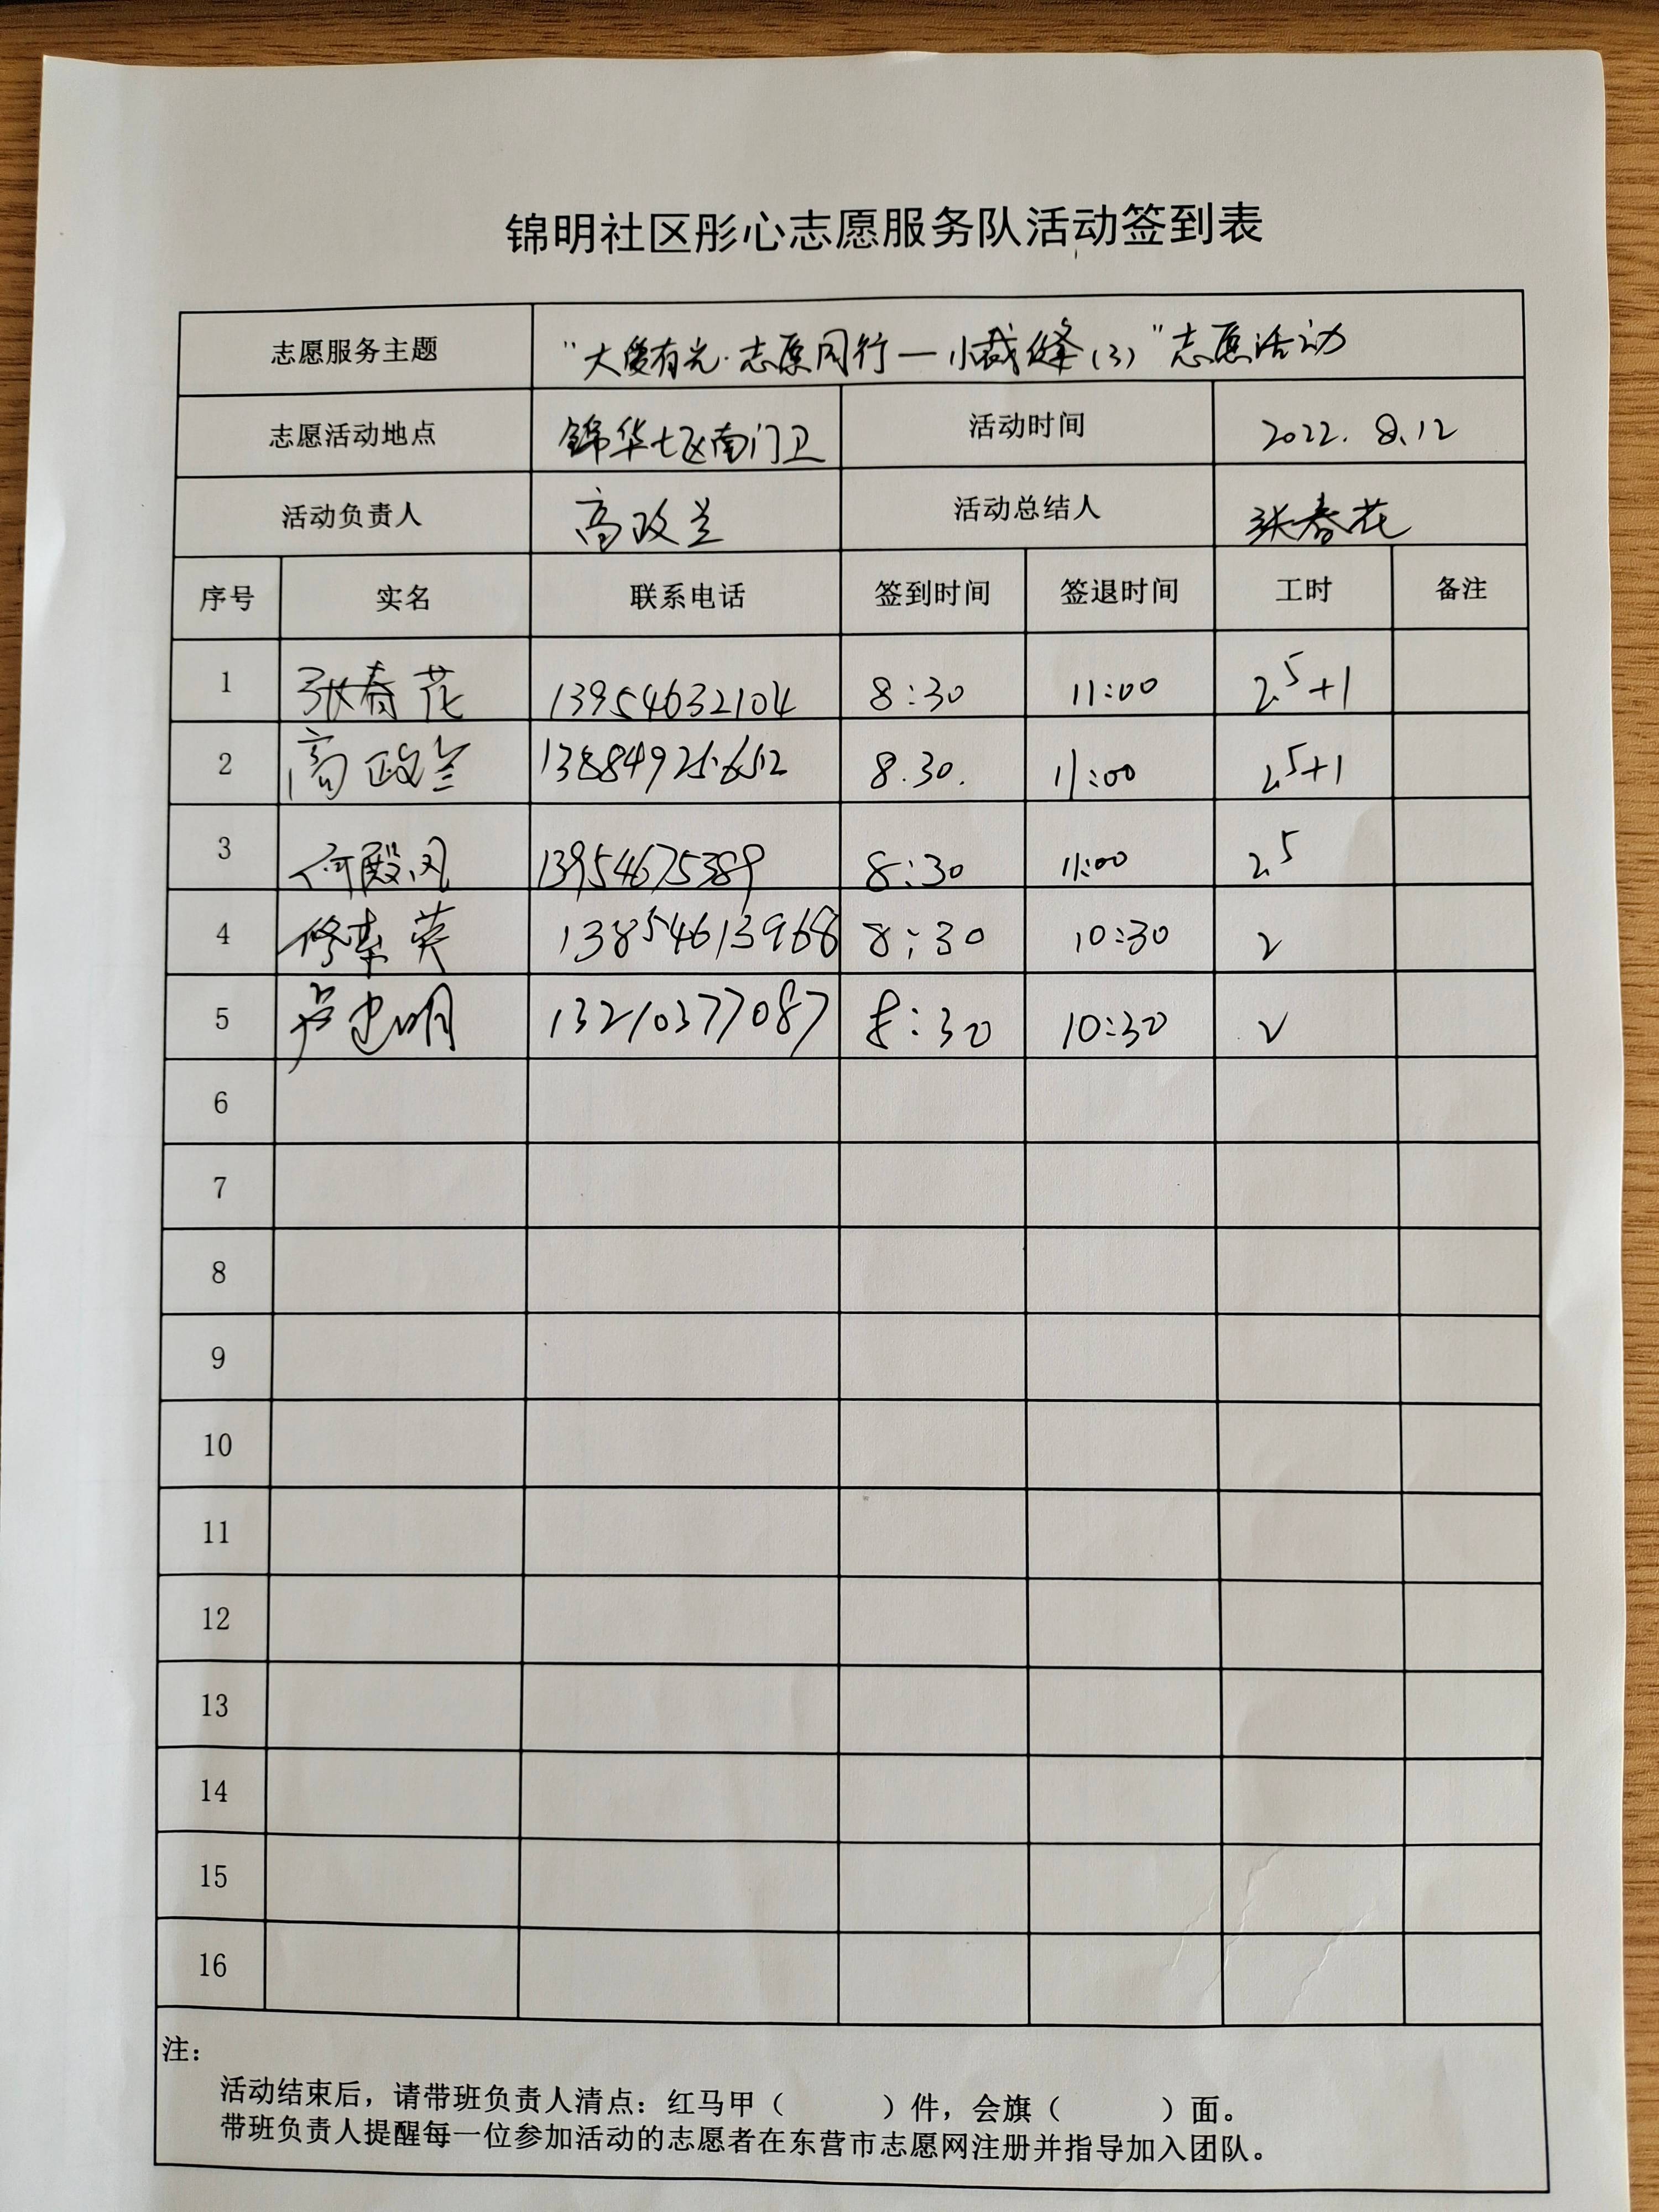 锦明社区彤心志愿服务队活动签到表
志愿服务主题 "大爱有光·志愿同行—小裁缝(3)"志愿活动
志愿活动地点 锦华七区南门卫 活动时间 2022.8.12
活动负责人 高政兰 活动总结人 张春花
序号 实名 联系电话 签到时间 签退时间 工时 备注
1 张春花 13954632104 8:30 11:00 2.5+1
2 高政兰 13884925652 8.30. 11:00 2.5+1
3 何殿凤 13954675389 8:30 11:00 2.5
4 修素英 13854613968 8:30 10:30 2
5 卢建明 13210377087 8:30 10:30 2
6
7
8
9
10
11
12
13
14
15
16
注：
活动结束后，请带班负责人清点：红马甲（ ）件，会旗（ ）面。
带班负责人提醒每一位参加活动的志愿者在东营市志愿网注册并指导加入团队。